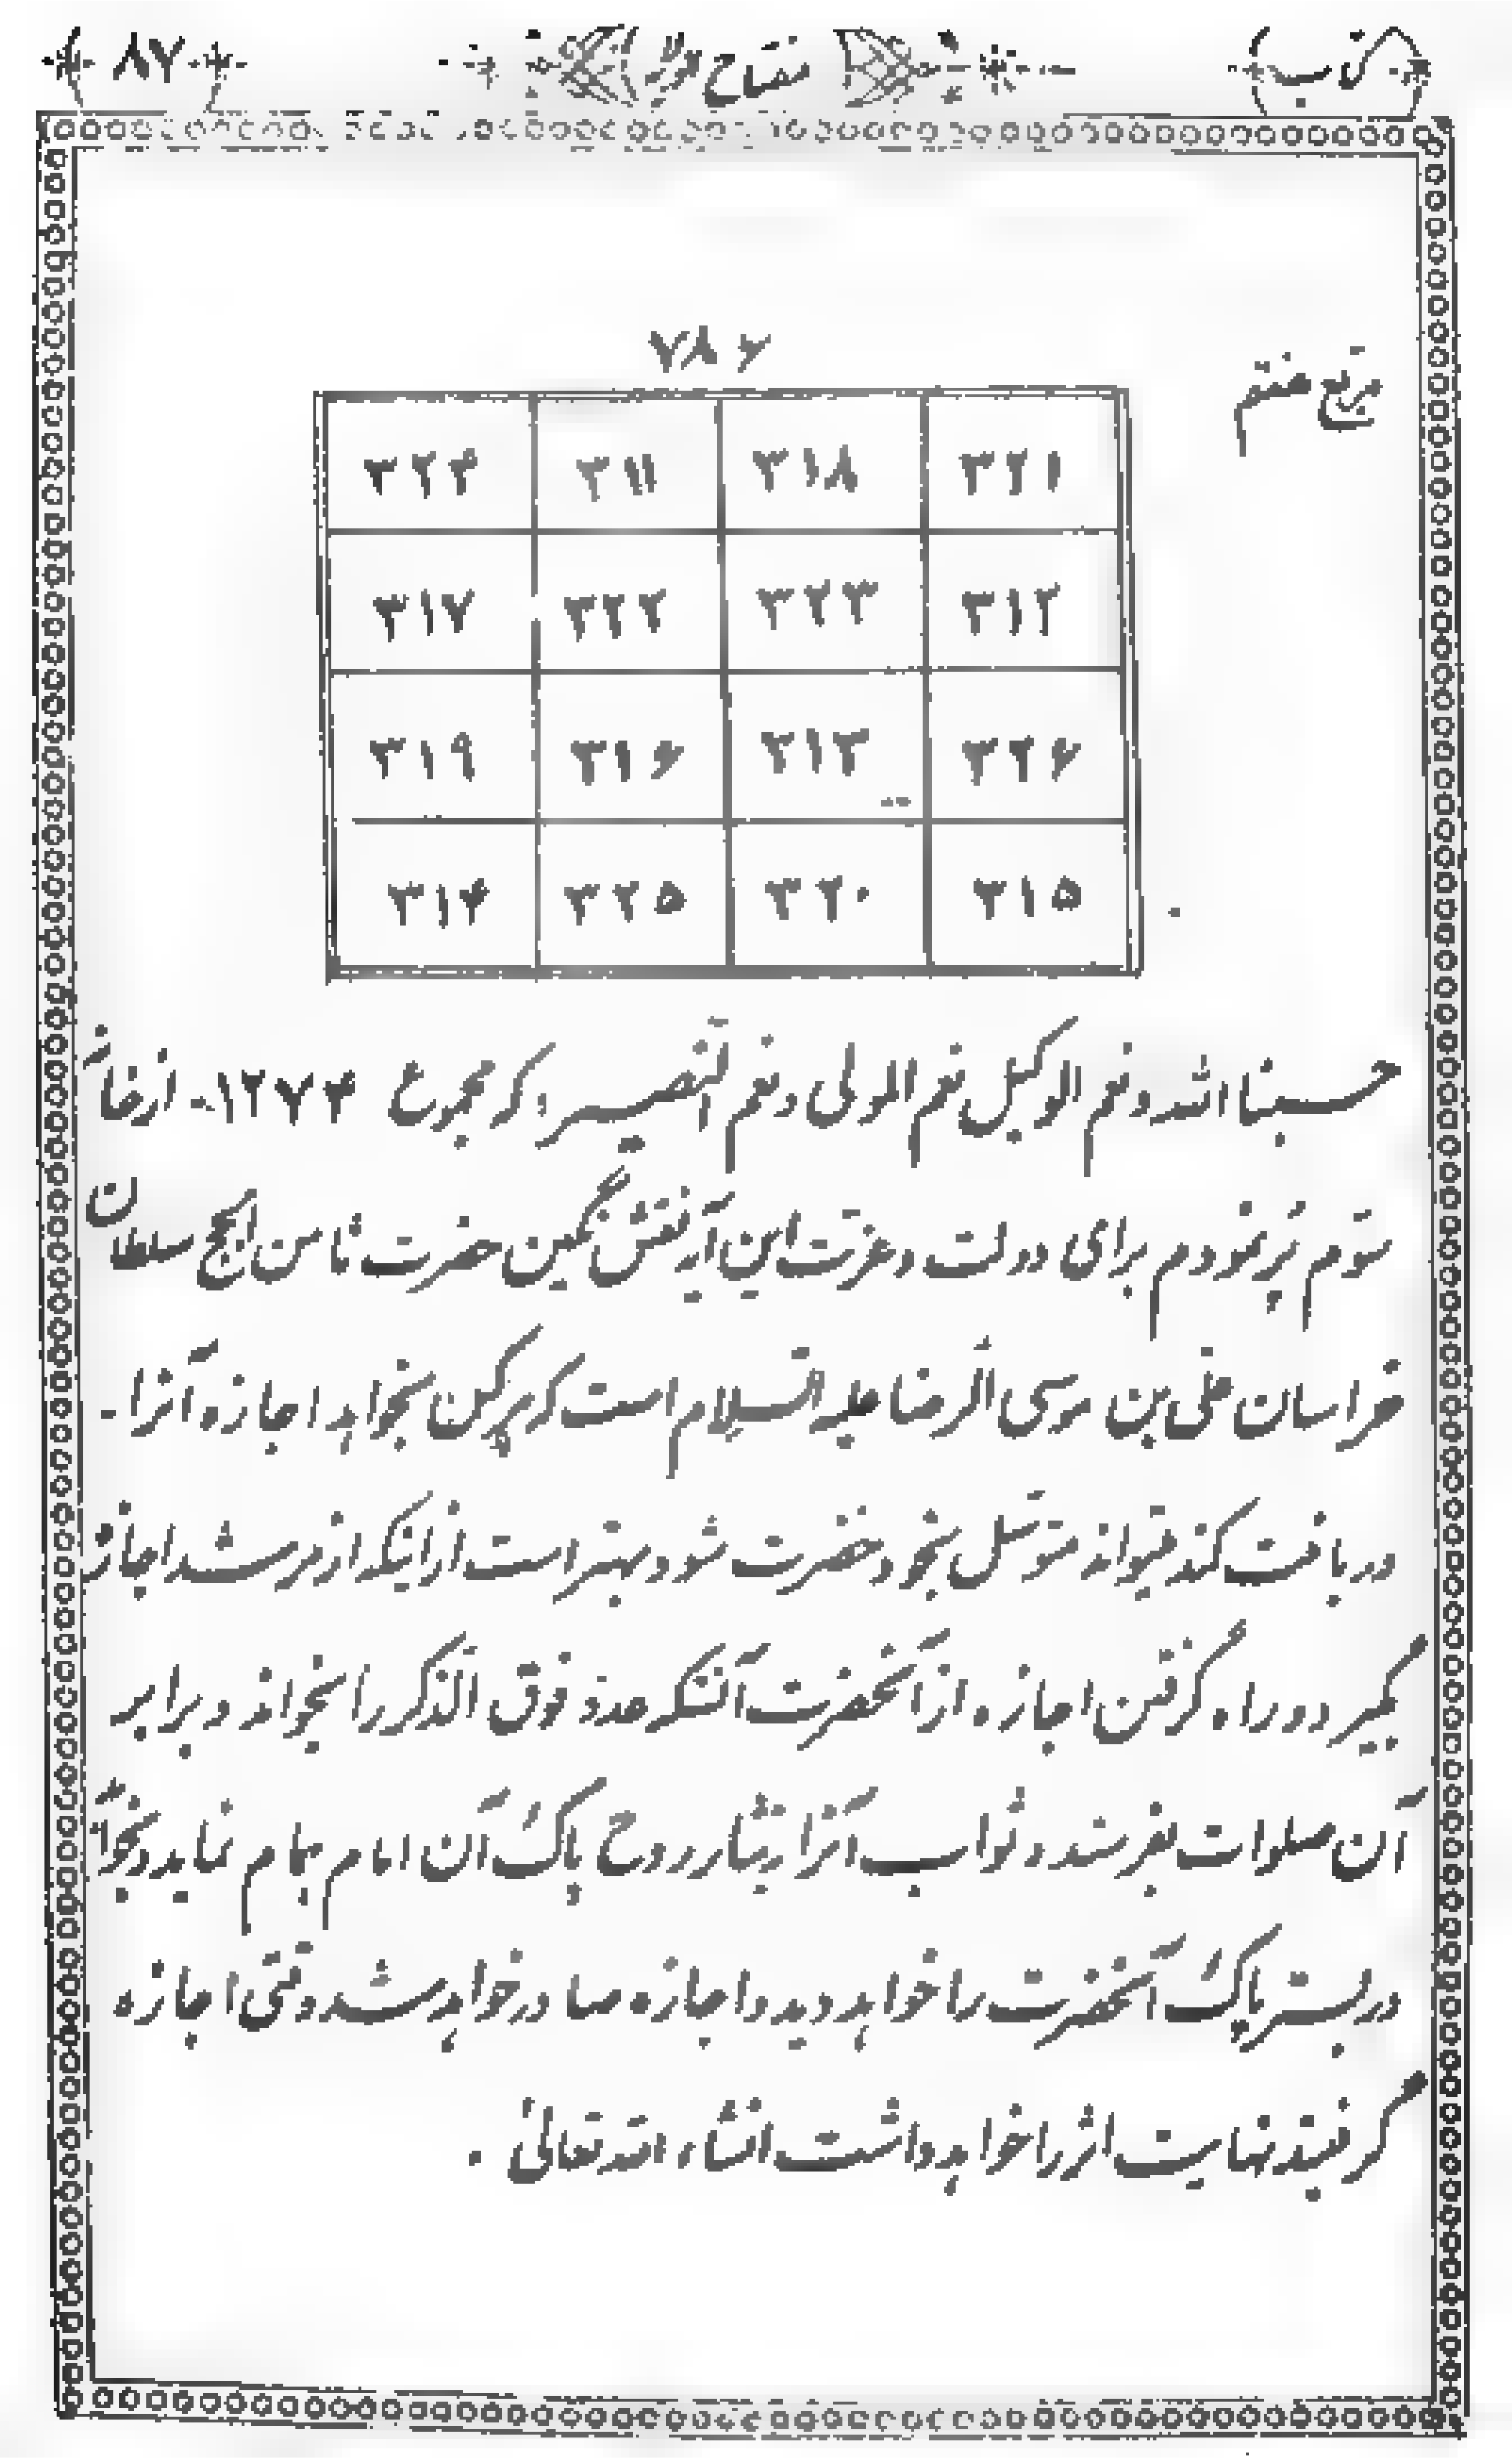 کتاب مفتاح ﴿۸۷﴾
مربع هفتم
۷۸۶
۳۲۴ ۳۱۱ ۳۱۸ ۳۲۱
۳۱۷ ۳۲۲ ۳۲۳ ۳۱۲
۳۱۹ ۳۱۶ ۳۱۳ ۳۲۶
۳۱۴ ۳۲۵ ۳۲۰ ۳۱۵
حسبنا الله ونعم الوکیل نعم المولی ونعم النصیر و که مجموع ۱۲۷۴- از خانهٔ
سوّم پُر نمودم برای دولت و عزّت این آیه نقش نگین حضرت ثامن الحجج سلطان
خراسان علی بن موسی الرضا علیه السلام است که هر کس بخواهد اجازه آنرا -
دریافت کند میتواند متوسّل بخود حضرت شود و بهتر است از اینکه از مرشد اجازه
بگیرد و راه گرفتن اجازه از آنحضرت آنستکه عدد فوق الذکر را بخواند و برابر
آن صلوات بفرستد و ثواب آنرا نثار روح پاک آن امام همام نماید و بخوابد
در بستر پاک آنحضرت را خواهد دید و اجازه صادر خواهد شد وقتی اجازه
گرفتید نهایت اثر را خواهد داشت انشاء الله تعالیٰ .